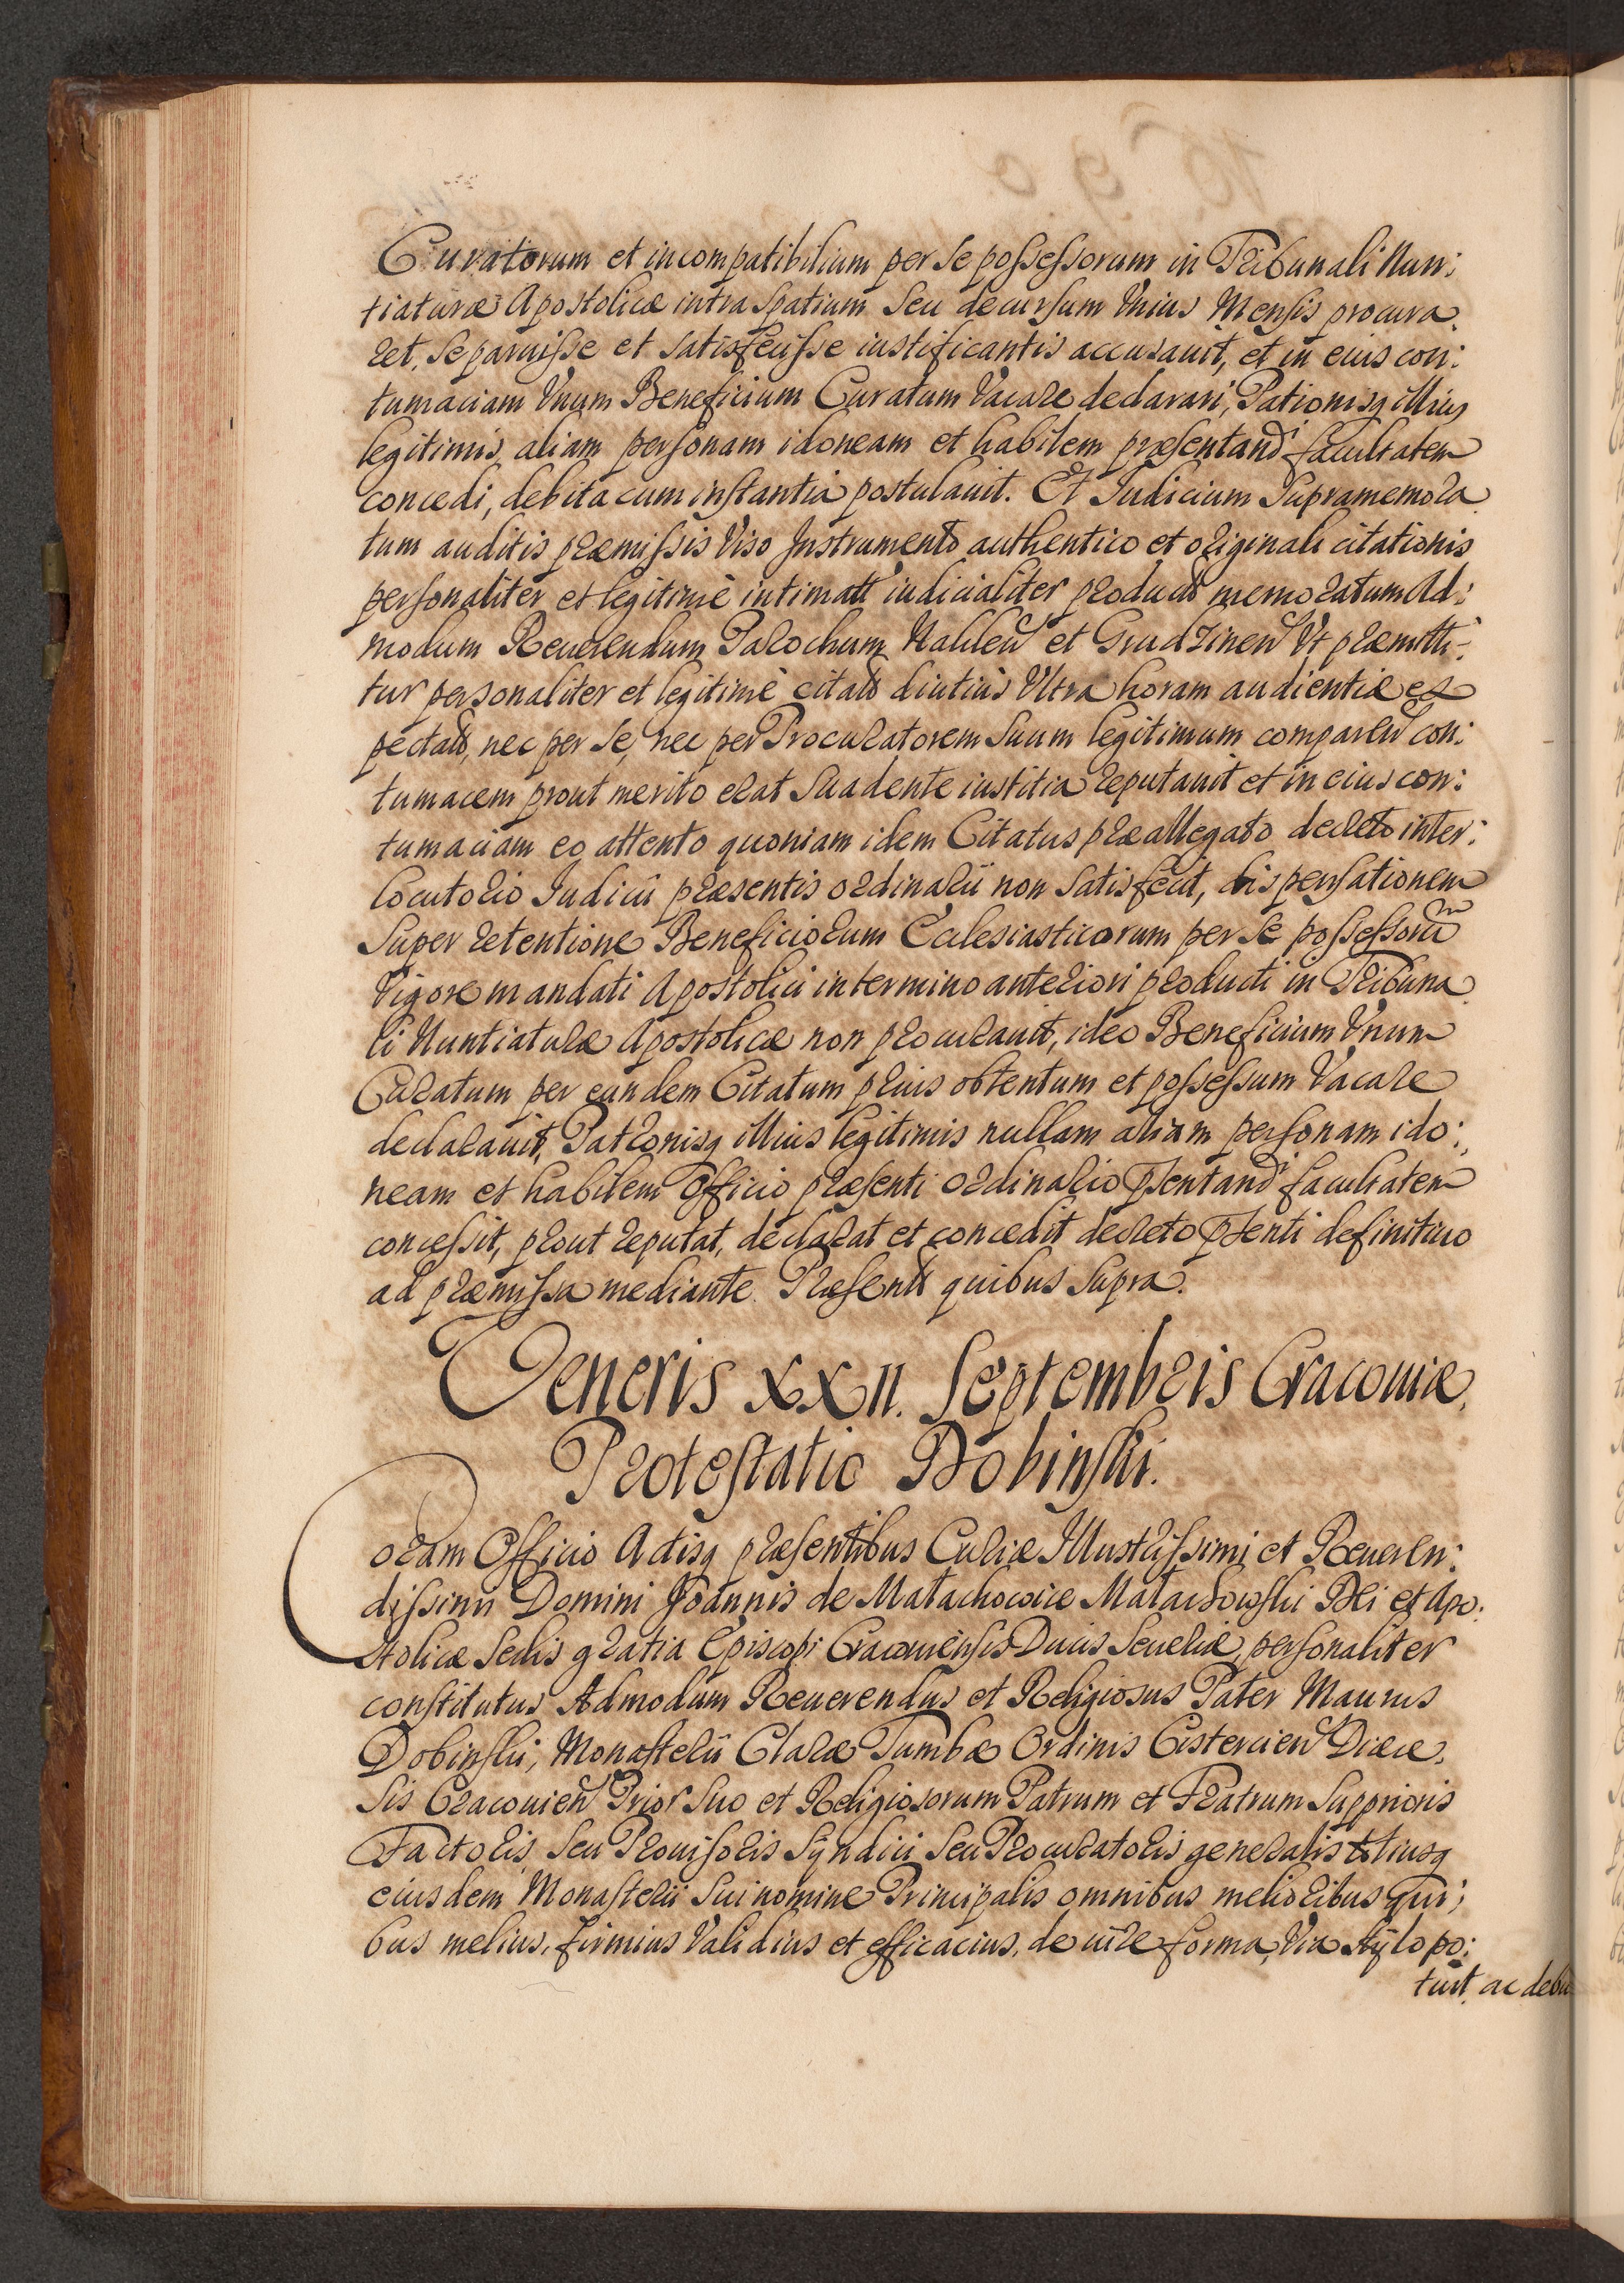 Curatorum et incompatibilium per se possessorum in Tribunali Nun:
tiaturæ Apostolicæ intra spatium seu decursum Unius Mensis procura.
ret, se paruisse et satisfecisse iustificantis accusauit, et in eius con:
tumaciam Unum Beneficium Curatum Vacare declarari, Patronisq illius
legitimis, aliam personam idoneam et habilem præsentand facultatem
concedi, debita cum instantia postulauit. Et Iudicium Supramemora
tum auditis præmissis Viso Instrumento authentico et originali citationis
personaliter et legitimè intimatt iudicialiter product memoratum Ad:
modum Reuerendum Parochum et Grudzinen Ut præmitti-
tur personaliter et legitimè citatt diutius Ultra horam audientiæ ex
pectatt, nec per se, nec per Procuratorem suum legitimum comparen con:
tumacem prout merito erat suadente iustitia reputauit et in eius con:
tumaciam eo attento quoniam idem Citatus præallegato decreto inter:
locutorio Iudicii præsentis ordinarii non satisfecit, dispensationem
Super retentione Beneficiorum Ecclesiasticorum per se possessorum
Vigore mandati Apostolici in termino anteriori producti in Tribuna
li Nuntiaturæ Apostolicæ non procurauit, ideo Beneficium Unum
Curatum per eundem Citatum prius obtentum et possessum Vacare
declarauit, Patronisq illius legitimis nullam aliam personam ido:
neam et habilem Officio præsenti ordinario psentand facultatem
concessit, prout reputat, declarat et concedit decreto psenti definitiuo
ad præmissa mediante. Præsentt quibus supra.
Veneris XXII. Septembris Cracouiæ.
Protestatio Dobinski.
Coram Officio Actisq præsentibus Curiæ Illustrissimi et Reueren:
dissimi Domini Joannis de Małachowice Małachowski Dei et Apo:
stolicæ Sedis gratia Episcopi Cracouiensis Ducis Seueriæ, personaliter
constitutus Admodum Reuerendus et Religiosus Pater Maurus
Dobinski, Monasterii Claræ Tumbæ Ordinis Cistercien Diœce.
sis Cracouien Prior suo et Religiosorum Patrum et Fratrum Supprioris
Factoris, seu Prouisoris Syndici seu Procuratoris generalis totiusq
eiusdem Monasterii sui nomine Principalis omnibus melioribus qui:
bus melius, firmius Validius et efficacius, de iure forma, Via stylo po:
tuit, ac debu